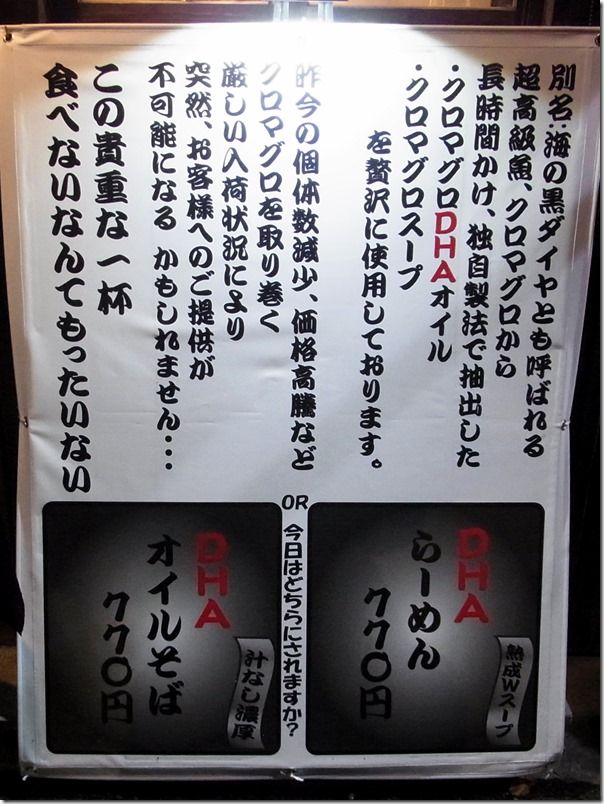 別名:海の黒ダイヤとも呼ばれる
超高級魚、クロマグロから
長時間かけ、独自製法で抽出した
・クロマグロDHAオイル
・クロマグロスープ
を贅沢に使用しております。
昨今の個体数減少、価格高騰など
クロマグロを取り巻く
厳しい入荷状況により
突然、お客様へのご提供が
不可能になる かもしれません・・・
この貴重な一杯
食べないなんてもったいない
DHA
らーめん
770円
熟成Wスープ
OR
今日はどちらにされますか?
DHA
オイルそば
770円
汁なし濃厚